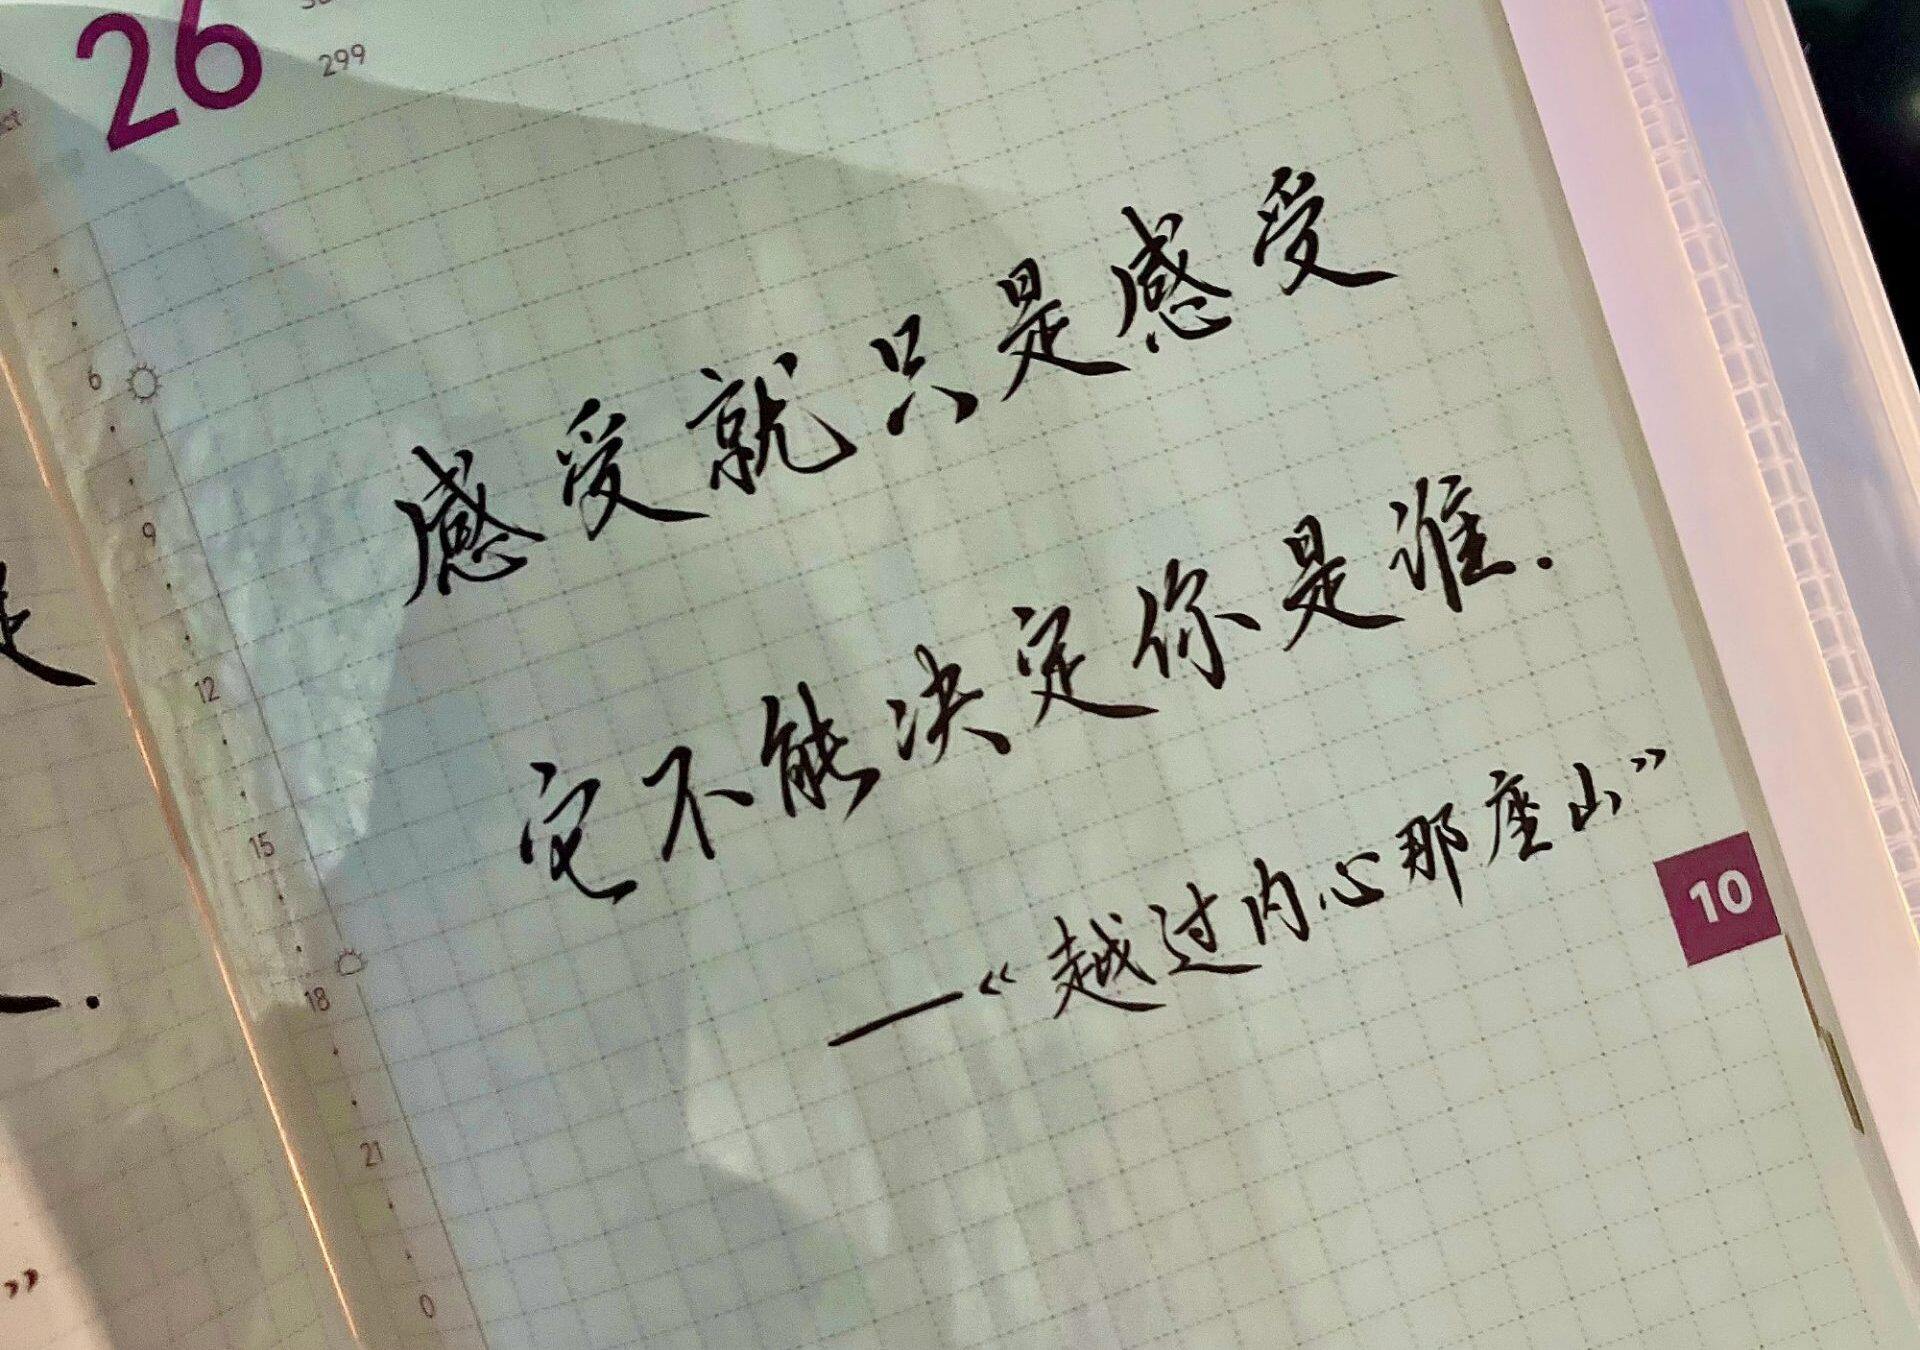 26
299
感受就只是感受
它不能决定你是谁.
—《越过内心那座山》
10
6
9
12
15
18
21
0